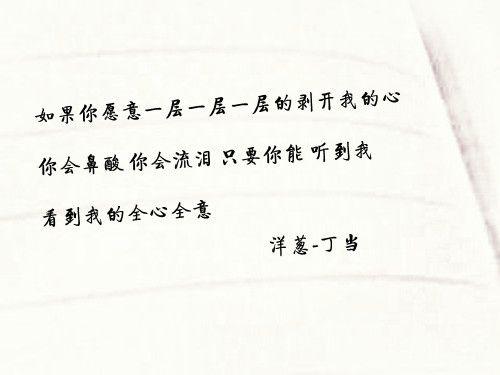 如果你愿意一层一层一层的剥开我的心
你会鼻酸 你会流泪 只要你能 听到我
看到我的全心全意
洋葱-丁当